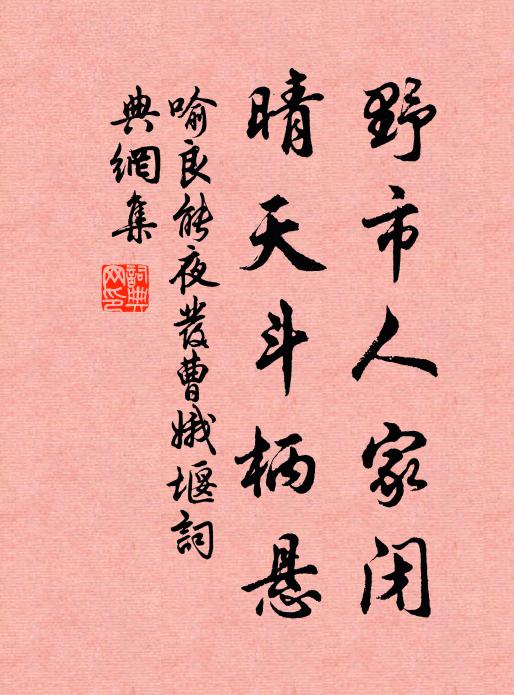 野市人家闭
晴天斗柄悬
喻良能夜發曹娥堰詞
典網集
詞典
网印